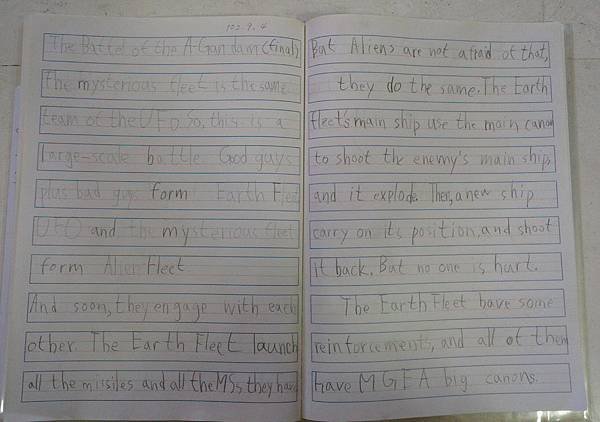 102.9.4
The Battel of the A-Gan dam (final)
the mysterious fleet is the same
team of the UFO. So, this is a
large-scale battle. Good guys
plus bad guys form Earth Fleet
UFO and the mysterious fleet
form Alien Fleet
And soon, they engage with each
other. The Earth Fleet launch
all the missiles and all the MSs they have
But Aliens are not afraid of that,
they do the same. The Earth
Fleet's main ship use the main canon
to shoot the enemy's main ship,
and it explode. Then, a new ship
carry on its position, and shoot
it back. But no one is hurt.
The Earth Fleet have some
reinforcements, and all of them
have MGFA big canons.